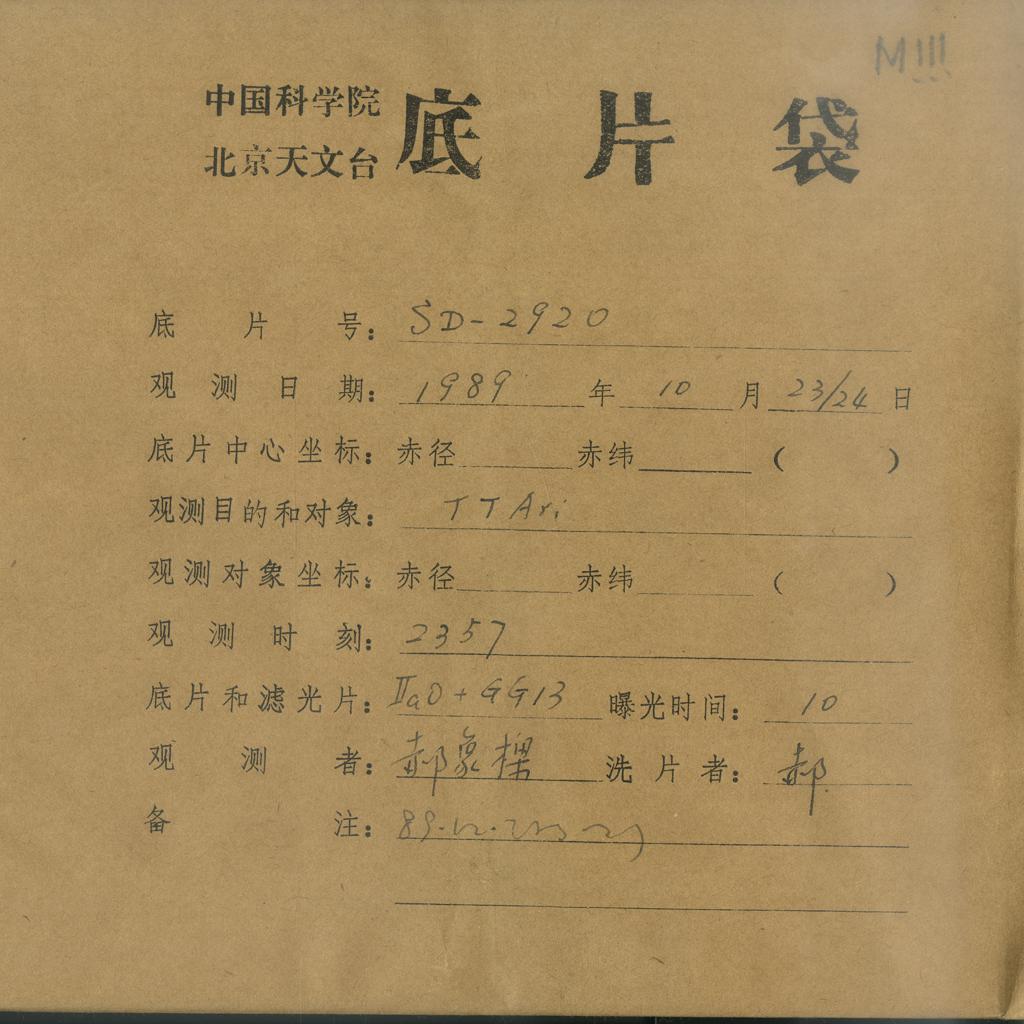 M!!!
中国科学院
北京天文台
底片袋
底片号：SD-2920
观测日期：1989年10月23/24日
底片中心坐标：赤径 赤纬 （ ）
观测目的和对象：TT Ari
观测对象坐标：赤径 赤纬 （ ）
观测时刻：2357
底片和滤光片：IIaO+GG13 曝光时间：10
观测者：郝象樑 洗片者：郝
备注：